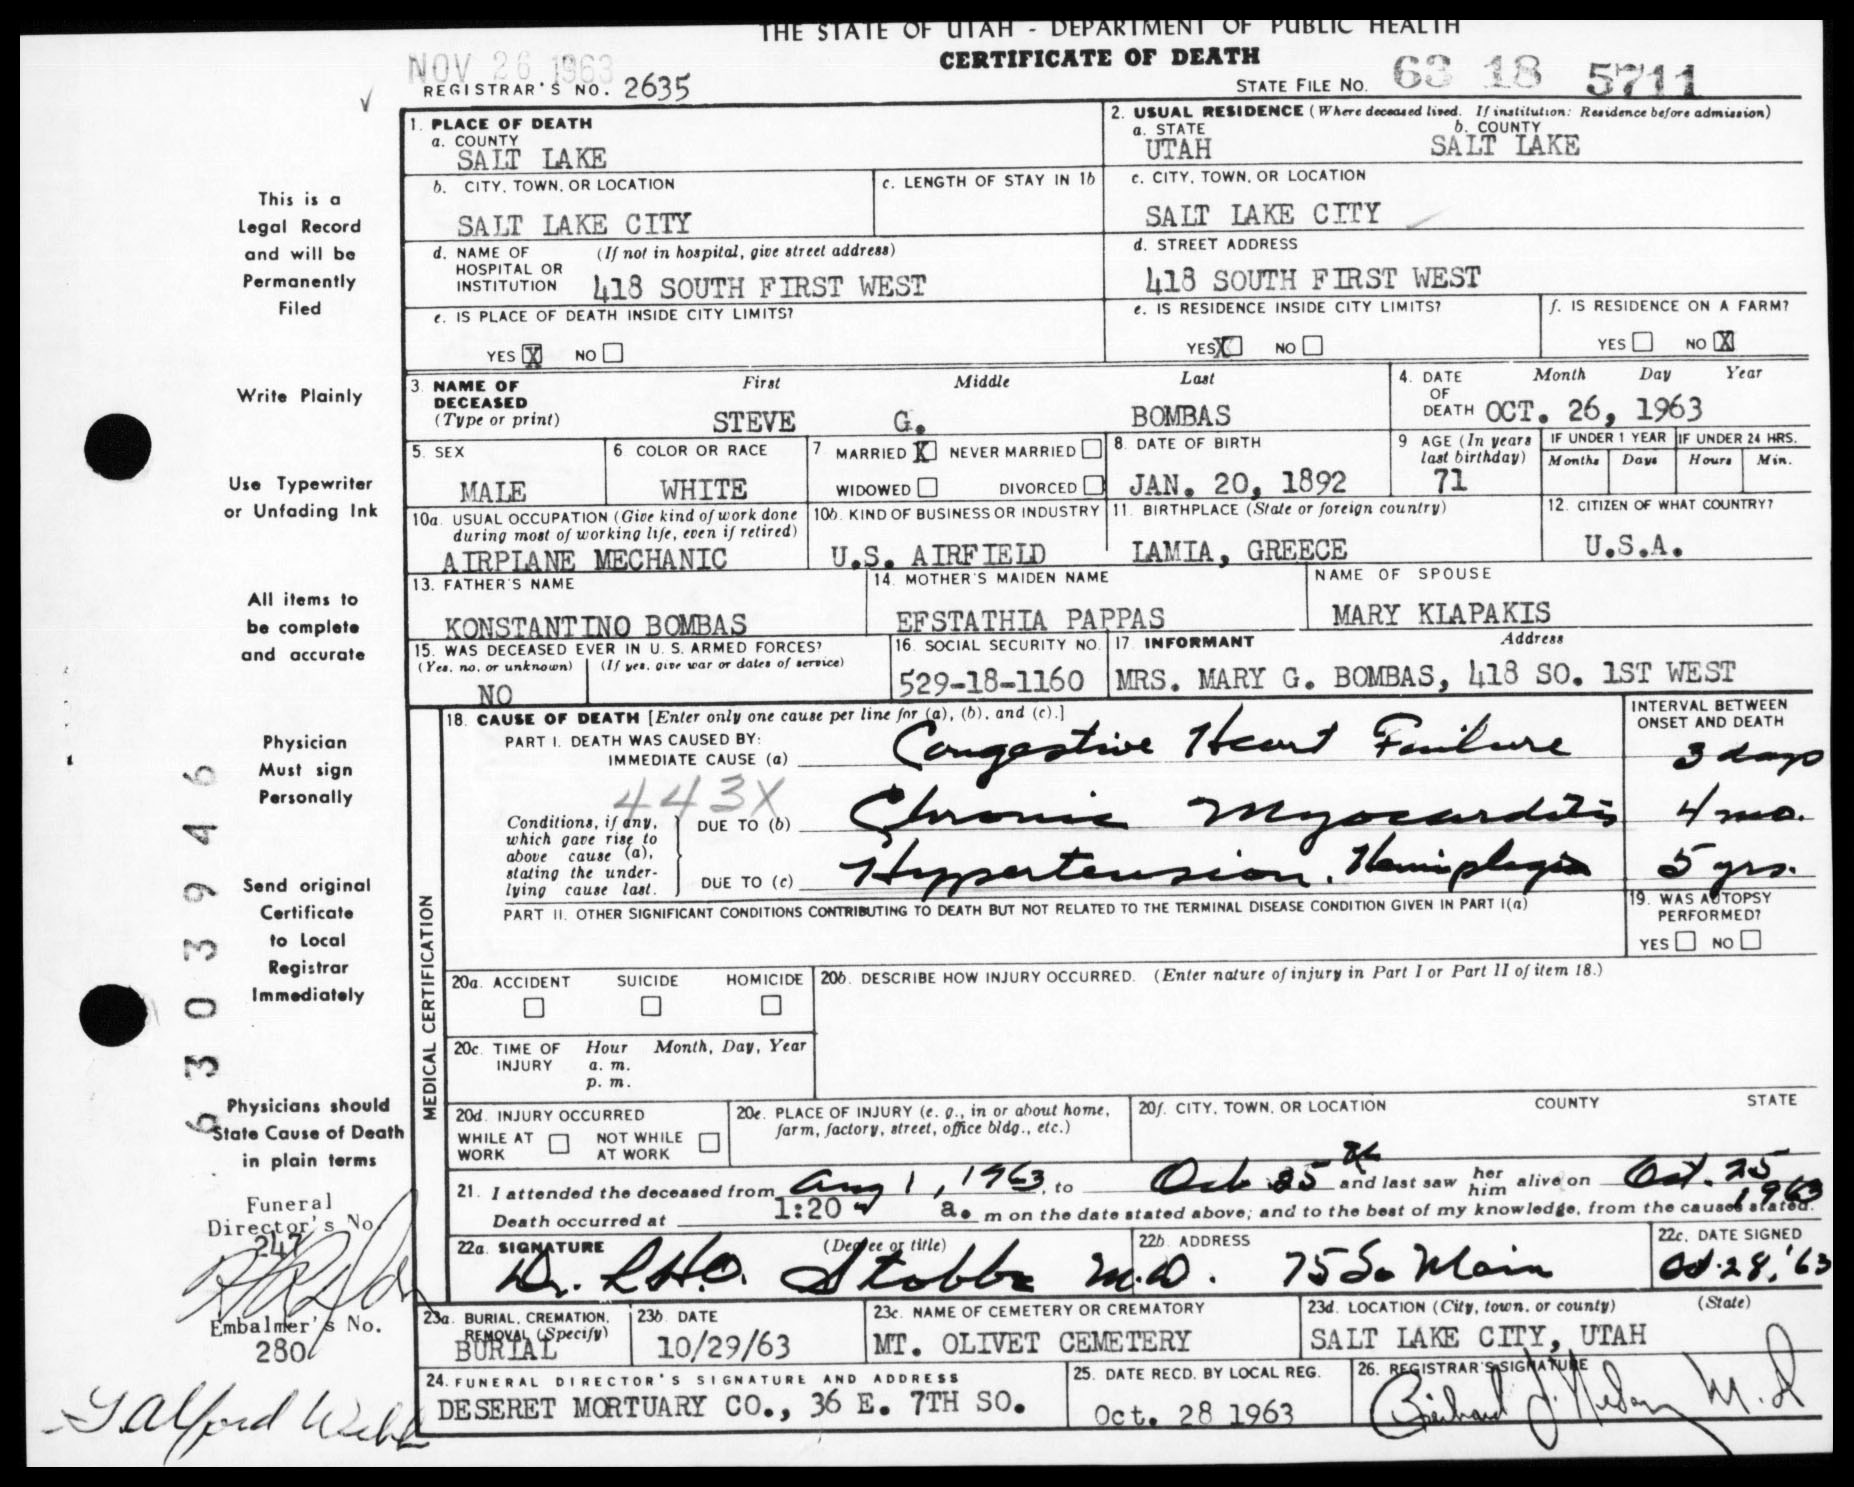 THE STATE OF UTAH - DEPARTMENT OF PUBLIC HEALTH
CERTIFICATE OF DEATH
NOV 26 1963
REGISTRAR'S NO. 2635
STATE FILE NO. 63 18 5711
This is a
Legal Record
and will be
Permanently
Filed
Write Plainly
Use Typewriter
or Unfading Ink
All items to
be complete
and accurate
Physician
Must sign
Personally
Send original
Certificate
to Local
Registrar
Immediately
Physicians should
State Cause of Death
in plain terms
Funeral
Director's No.
247
Embalmer's No.
280
6303946
1. PLACE OF DEATH
a. COUNTY
SALT LAKE
2. USUAL RESIDENCE (Where deceased lived. If institution: Residence before admission)
a. STATE b. COUNTY
UTAH SALT LAKE
b. CITY, TOWN, OR LOCATION
SALT LAKE CITY
c. LENGTH OF STAY IN 1b
c. CITY, TOWN, OR LOCATION
SALT LAKE CITY
d. NAME OF HOSPITAL OR INSTITUTION (If not in hospital, give street address)
418 SOUTH FIRST WEST
d. STREET ADDRESS
418 SOUTH FIRST WEST
e. IS PLACE OF DEATH INSIDE CITY LIMITS?
YES X NO
e. IS RESIDENCE INSIDE CITY LIMITS?
YES X NO
f. IS RESIDENCE ON A FARM?
YES NO X
3. NAME OF DECEASED (Type or print)
First Middle Last
STEVE G. BOMBAS
4. DATE OF DEATH Month Day Year
OCT. 26, 1963
5. SEX
MALE
6. COLOR OR RACE
WHITE
7. MARRIED X NEVER MARRIED
WIDOWED DIVORCED
8. DATE OF BIRTH
JAN. 20, 1892
9 AGE (In years last birthday)
71
IF UNDER 1 YEAR IF UNDER 24 HRS.
Months Days Hours Min.
10a. USUAL OCCUPATION (Give kind of work done
during most of working life, even if retired)
AIRPLANE MECHANIC
10b. KIND OF BUSINESS OR INDUSTRY
U.S. AIRFIELD
11. BIRTHPLACE (State or foreign country)
LAMIA, GREECE
12. CITIZEN OF WHAT COUNTRY?
U.S.A.
13. FATHER'S NAME
KONSTANTINO BOMBAS
14. MOTHER'S MAIDEN NAME
EFSTATHIA PAPPAS
NAME OF SPOUSE
MARY KLAPAKIS
15. WAS DECEASED EVER IN U. S. ARMED FORCES?
(Yes, no, or unknown) (If yes, give war or dates of service)
NO
16. SOCIAL SECURITY NO.
529-18-1160
17. INFORMANT Address
MRS. MARY G. BOMBAS, 418 SO. 1ST WEST
MEDICAL CERTIFICATION
18. CAUSE OF DEATH [Enter only one cause per line for (a), (b), and (c).]
INTERVAL BETWEEN
ONSET AND DEATH
PART I. DEATH WAS CAUSED BY:
IMMEDIATE CAUSE (a) Congestive Heart Failure 3 days
443X
Conditions, if any,
which gave rise to
above cause (a),
stating the under-
lying cause last.
DUE TO (b) Chronic Myocarditis 4 mo.
DUE TO (c) Hypertension. Hemiplegia 5 yrs.
PART II. OTHER SIGNIFICANT CONDITIONS CONTRIBUTING TO DEATH BUT NOT RELATED TO THE TERMINAL DISEASE CONDITION GIVEN IN PART I(a)
19. WAS AUTOPSY
PERFORMED?
YES NO
20a. ACCIDENT SUICIDE HOMICIDE
20b. DESCRIBE HOW INJURY OCCURRED. (Enter nature of injury in Part I or Part II of item 18.)
20c. TIME OF INJURY Hour Month, Day, Year
a. m.
p. m.
20d. INJURY OCCURRED
WHILE AT WORK NOT WHILE AT WORK
20e. PLACE OF INJURY (e. g., in or about home,
farm, factory, street, office bldg., etc.)
20f. CITY, TOWN, OR LOCATION COUNTY STATE
21. I attended the deceased from Aug 1, 1963, to Oct 25th and last saw her him alive on Oct. 25 1963
Death occurred at 1:20 a. m on the date stated above; and to the best of my knowledge, from the causes stated.
22a. SIGNATURE (Degree or title)
Dr. L.H.O. Stobbe M.D.
22b. ADDRESS
75 So Main
22c. DATE SIGNED
Oct. 28, '63
23a. BURIAL, CREMATION,
REMOVAL (Specify)
BURIAL
23b. DATE
10/29/63
23c. NAME OF CEMETERY OR CREMATORY
MT. OLIVET CEMETERY
23d. LOCATION (City, town, or county) (State)
SALT LAKE CITY, UTAH
24. FUNERAL DIRECTOR'S SIGNATURE AND ADDRESS
DESERET MORTUARY CO., 36 E. 7TH SO.
25. DATE RECD. BY LOCAL REG.
Oct. 28 1963
26. REGISTRAR'S SIGNATURE
M.D